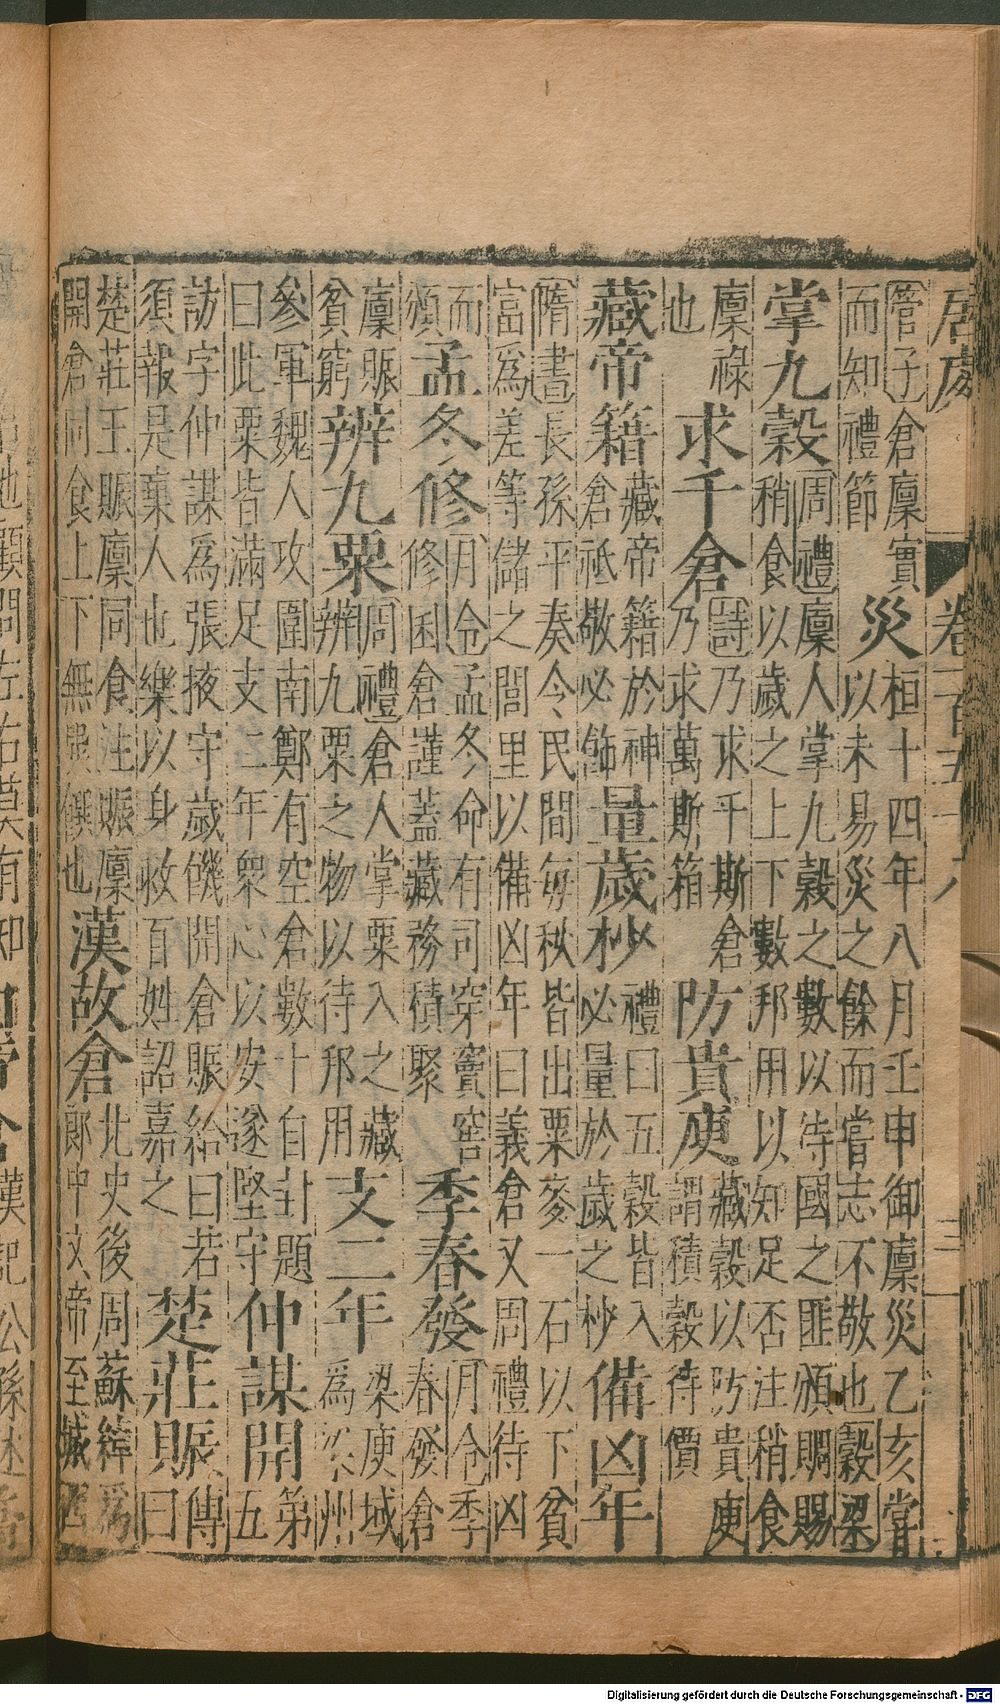 居處 卷一百五十八 三
管子倉廩實
而知禮節
災
桓十四年八月壬申御廩災乙亥嘗
以未易災之餘而嘗志不敬也穀梁
掌九穀
周禮廩人掌九穀之數以待國之匪頒賙賜
稍食以歲之上下數邦用以知足否注稍食
廩祿
也
求千倉
詩乃求千斯倉
乃求萬斯箱
防貴庾
藏穀以防貴庾
謂積穀待價
藏帝籍
藏帝籍於神
倉祗敬必飭
量歲杪
禮曰五穀皆入
必量於歲之杪
備凶年
隋書長孫平奏令民間每秋皆出粟麥一石以下貧
富為差等儲之閭里以備凶年曰義倉又周禮待凶
而
頒
孟冬修
月令孟冬命有司穿竇窖
修囷倉謹蓋藏務積聚
季春發
月令季
春發倉
廩賑
貧窮
辨九粟
周禮倉人掌粟入之藏
辨九粟之物以待邦用
支二年
梁庾域
為梁州
參軍魏人攻圍南鄭有空倉數十自封題
曰此粟皆滿足支二年衆心以安遂堅守
仲謀開
第
五
訪字仲謀為張掖守歲饑開倉賑給曰若
須報是棄人也樂以身救百姓詔嘉之
楚莊賑
傳
曰
楚莊王賑廩同食注賑廩
開倉同食上下無異饌也
漢故倉
北史後周蘇綽為
郎中文帝至城西
漢記公孫述
Digitalisierung gefördert durch die Deutsche Forschungsgemeinschaft - DFG